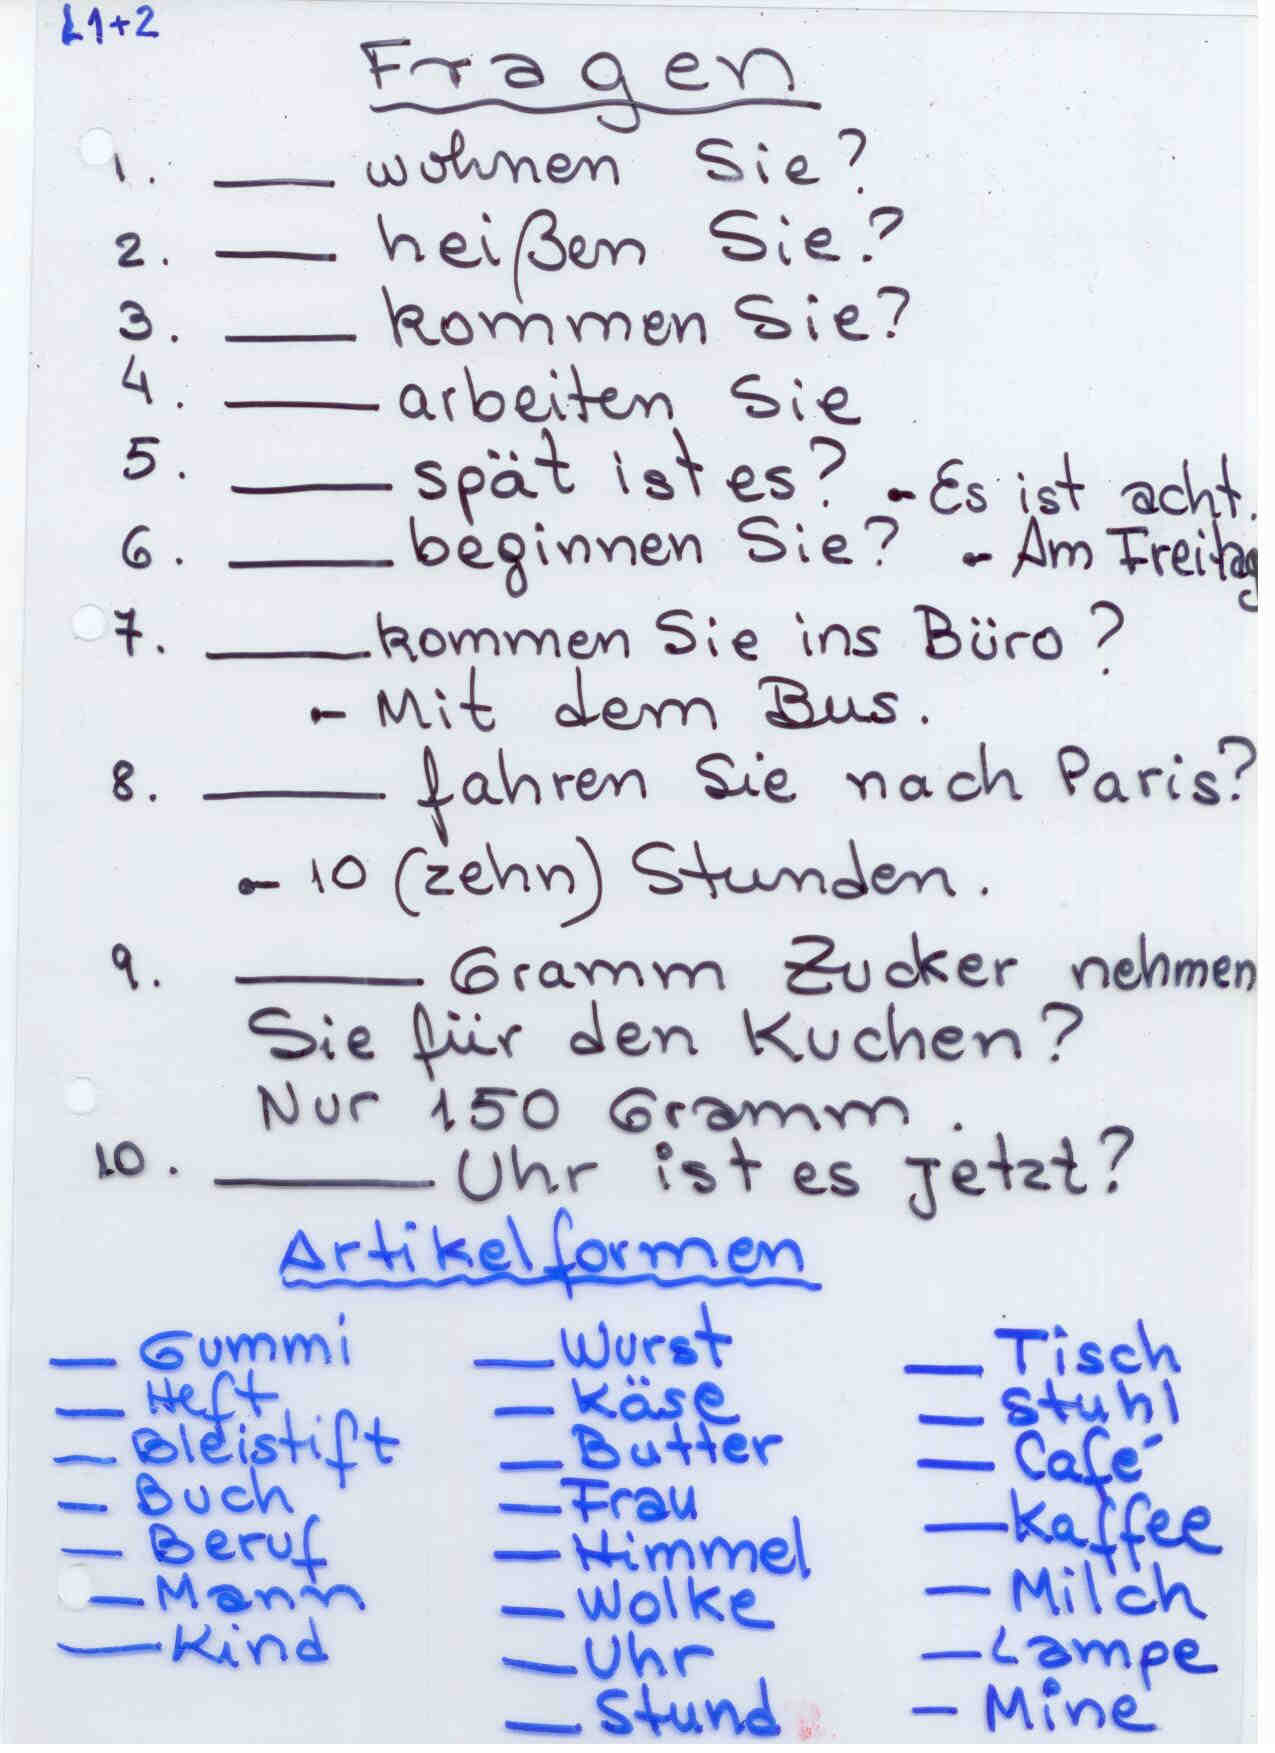 L1+2
Fragen
1. ____ wohnen Sie?
2. ____ heißen Sie?
3. ____ kommen Sie?
4. ____ arbeiten Sie
5. ____ spät ist es? - Es ist acht.
6. ____ beginnen Sie? - Am Freitag
7. ____ kommen Sie ins Büro?
- Mit dem Bus.
8. ____ fahren Sie nach Paris?
- 10 (zehn) Stunden.
9. ____ Gramm Zucker nehmen
Sie für den Kuchen?
Nur 150 Gramm.
10. ____ Uhr ist es jetzt?
Artikelformen
__ Gummi
__ Heft
__ Bleistift
__ Buch
__ Beruf
__ Mann
__ Kind
__ Wurst
__ Käse
__ Butter
__ Frau
__ Himmel
__ Wolke
__ Uhr
__ Stund
__ Tisch
__ Stuhl
__ Café
__ Kaffee
__ Milch
__ Lampe
__ Mine